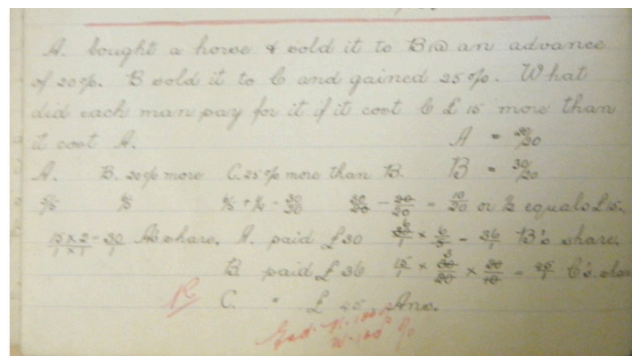 A. bought a horse & sold it to B @ an advance
of 20%. B sold it to C and gained 25%. What
did each man pay for it if it cost C £15 more than
it cost A. A = 20/20
A. B. 20% more C. 25% more than B. B =
5/5 6/5 6/5 + = 30/20 30/20 - 20/20 = 10/20 or ½ equals £15.
15 × 2 = 30 A's share. A. paid £30 × 6/5 = 36/1 B's share.
B paid £36 C's
R C. " £45 Ans.